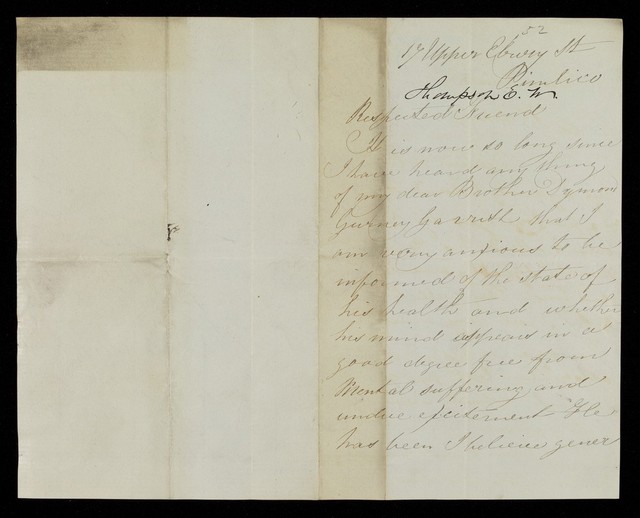 52
17 Upper Ebury St
Pimlico
Thompson E. M.
Respected Friend
It is now so long since
I have heard any thing
of my dear Brother Dymond
Gurney that I
am very anxious to be
informed of the state of
his health and whether
his mind appears in a
good degree free from
Mental suffering and
undue excitement He
has been I believe gener